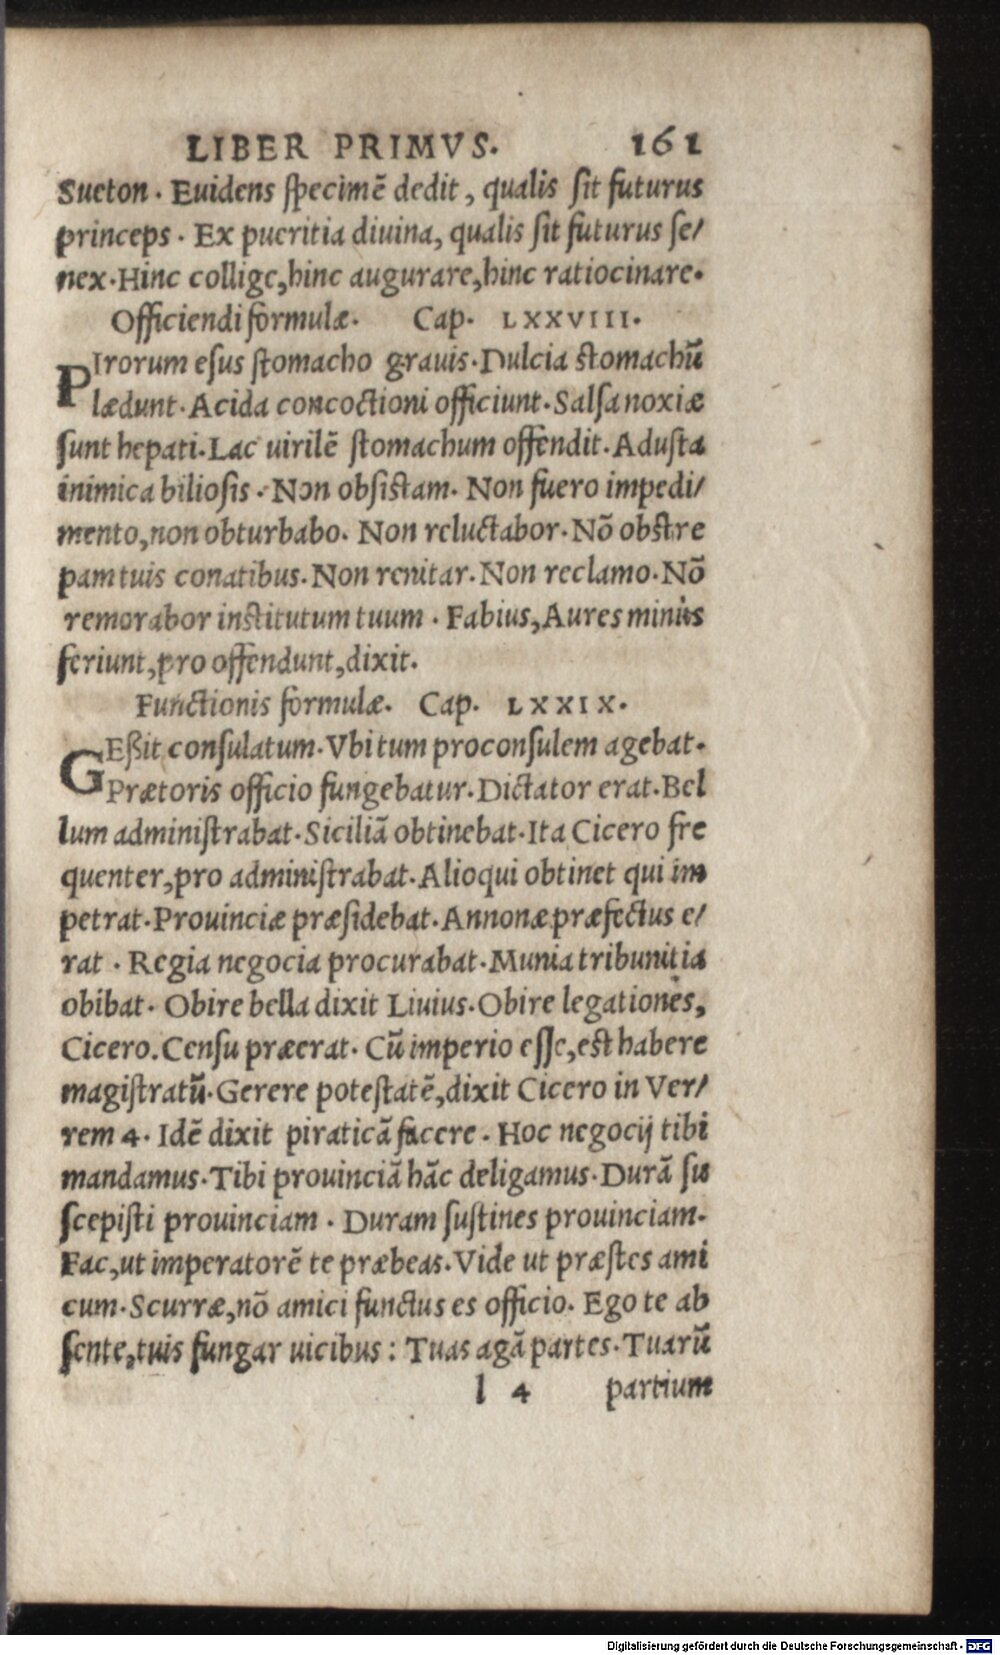 LIBER PRIMVS. 161
Sueton. Euidens specimē dedit, qualis sit futurus
princeps. Ex pueritia diuina, qualis sit futurus se/
nex. Hinc collige, hinc augurare, hinc ratiocinare.
Officiendi formulæ. Cap. LXXVIII.
PIrorum esus stomacho grauis. Dulcia stomachū
lædunt. Acida concoctioni officiunt. Salsa noxiæ
sunt hepati. Lac virilē stomachum offendit. Adusta
inimica biliosis. Non obsistam. Non fuero impedi/
mento, non obturbabo. Non reluctabor. Nō obstre
pam tuis conatibus. Non renitar. Non reclamo. Nō
remorabor institutum tuum. Fabius, Aures minùs
feriunt, pro offendunt, dixit.
Functionis formulæ. Cap. LXXIX.
GEßit consulatum. Vbi tum proconsulem agebat.
Prætoris officio fungebatur. Dictator erat. Bel
lum administrabat. Siciliā obtinebat. Ita Cicero fre
quenter, pro administrabat. Alioqui obtinet qui im
petrat. Prouinciæ præsidebat. Annonæ præfectus e/
rat. Regia negocia procurabat. Munia tribunitia
obibat. Obire bella dixit Liuius. Obire legationes,
Cicero. Censu præerat. Cū imperio esse, est habere
magistratū. Gerere potestatē, dixit Cicero in Ver/
rem 4. Idē dixit piraticā facere. Hoc negocij tibi
mandamus. Tibi prouinciā hāc deligamus. Durā su
scepisti prouinciam. Duram sustines prouinciam.
Fac, ut imperatorē te præbeas. Vide ut præstes ami
cum. Scurræ, nō amici functus es officio. Ego te ab
sente, tuis fungar uicibus: Tuas agā partes. Tuarū
l 4 partium
Digitalisierung gefördert durch die Deutsche Forschungsgemeinschaft - DFG